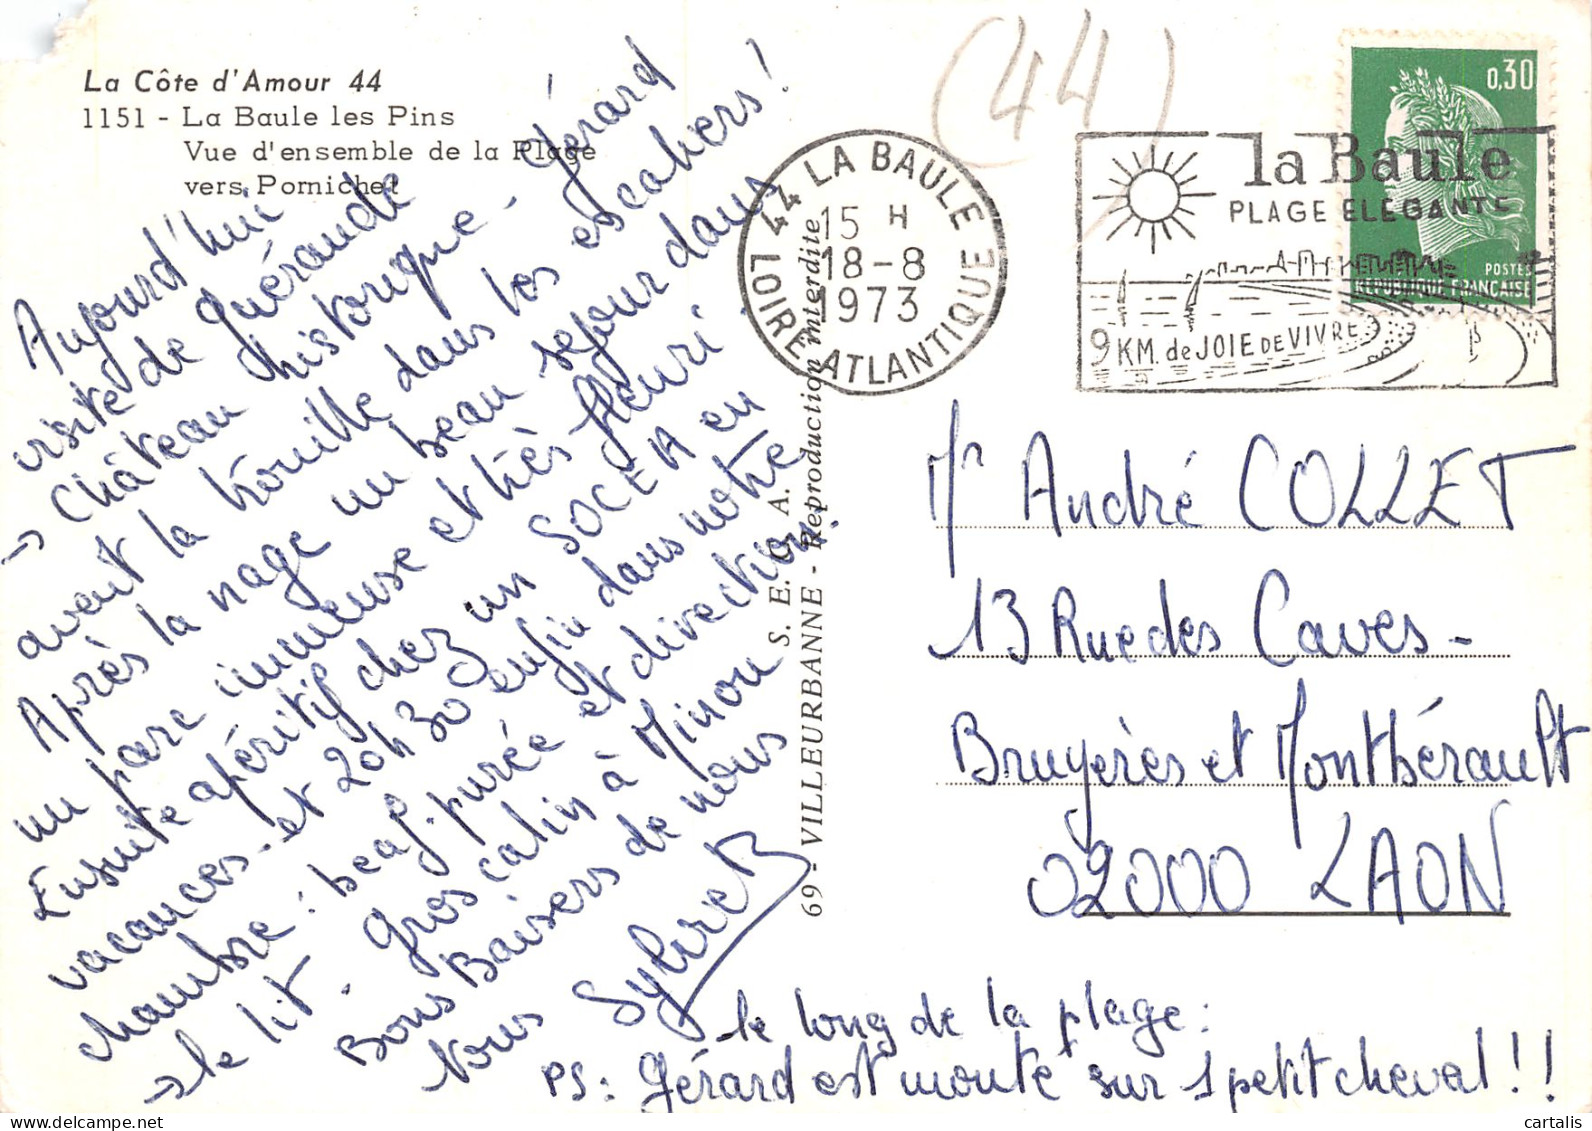 La Côte d'Amour 44
1151 - La Baule les Pins
Vue d'ensemble de la Plage
vers Pornichet
(44)
0,30
POSTES
REPUBLIQUE FRANÇAISE
44 LA BAULE
15 H
18-8
1973
LOIRE-ATLANTIQUE
la Baule
PLAGE ELEGANTE
9 KM. de JOIE DE VIVRE
Aujourd'hui
visite de Guérande
→ Château historique - Gérard
avait la trouille dans les escaliers!
Après la nage un beau séjour dans
un parc immense et très fleuri.
Ensuite apéritif chez un SOCEA en
vacances - et 20h30 enfin dans notre
chambre : beaf. purée et direction
→ le lit. Gros calin à Minou
Bons Baisers de nous
Nous Sylviret
S. E. C. A.
69 - VILLEURBANNE - Reproduction interdite
Mr André COLLET
13 Rue des Caves -
Bruyères et Monthérault
02000 LAON
le long de la plage :
PS : Gérard est monté sur 1 petit cheval !!
cartalis